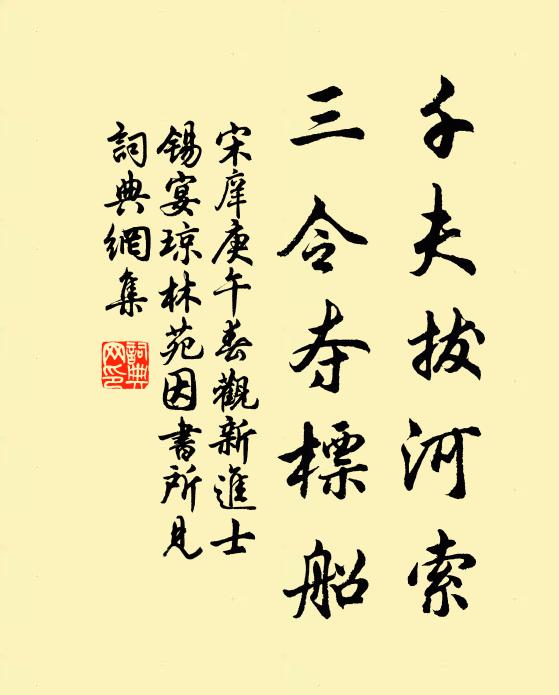 千夫拔河索
三令夺標船
宋庠庚午春觀新進士
錫宴琼林苑因書所見
詞典網集
詞典網印